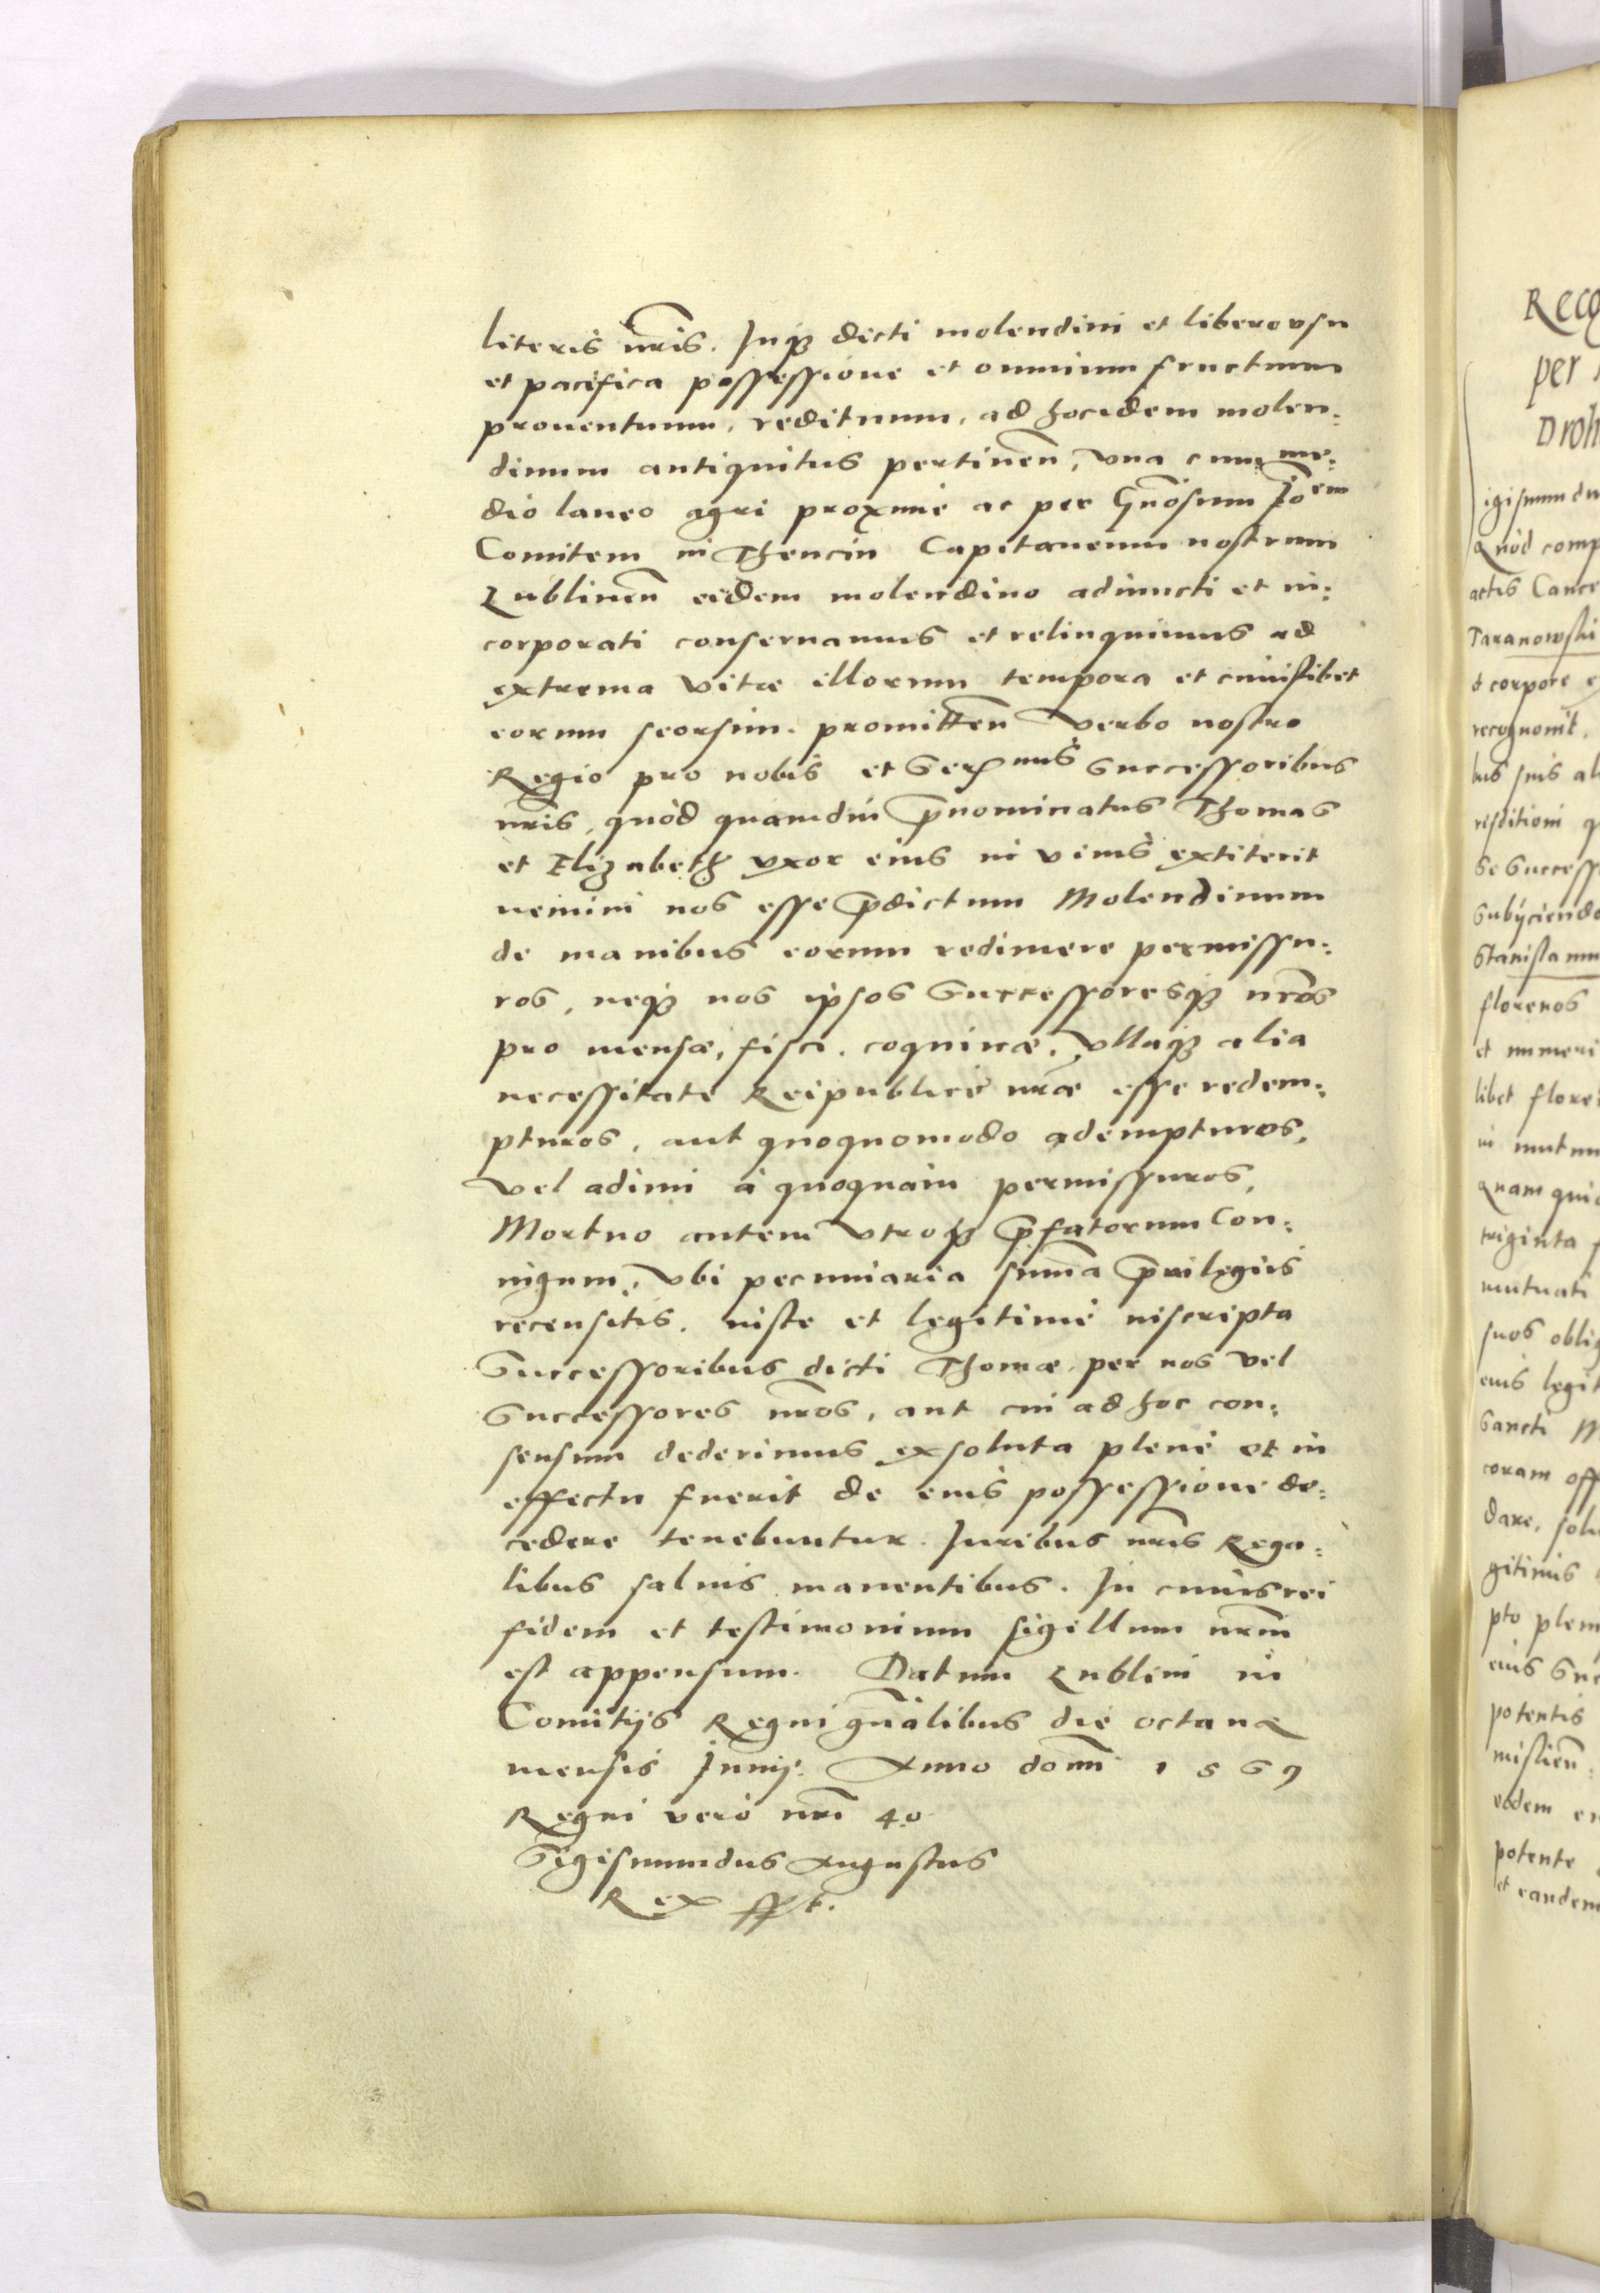 literis nr̃is. Inq3 dicti molendini et libero vsu
et pacifica possessione et omnium fructuum
prouentuum, redituum, ad hocidem molen:
dinum antiquitus pertineñ, vna cum me:
dio laneo agri proxime ac per Gñosum Joem
Comitem in Thencin Capitaneum nostrum
Lublineñ eidem molendino adiuncti et in:
corporati conseruamus et relinquimus ad
extrema vitæ illorum tempora et cuiuslibet
eorum seorsim. promitteñ verbo nostro
Regio pro nobis et Serſmis Successoribus
nr̃is, quòd quamdiu p̃nominatus Thomas
et Elizabeth vxor eius in viuis extiterit
nemini nos esse p̃dictum Molendinum
de manibus eorum redimere permissu:
ros, neq3 nos ipsos Successoresq3 nr̃os
pro mensæ, fisci, coquinæ, vllaq3 alia
necessitate Reipublice nr̃æ esse redem:
pturos, aut quoquomodo adempturos,
vel adimi à quoquam permissuros,
Mortuo autem vtroq3 p̃fatorum Con:
iugum, vbi pecuniaria sum̃a p̃uilegiis
recensitis, iuste et legitime inscripta
Successoribus dicti Thomæ per nos vel
Successores nr̃os, aut cui ad hoc con:
sensum dederimus exsoluta plene et in
effectu fuerit de eius possessione de:
cedere tenebuntur. Iuribus nr̃is Rega:
libus saluis manentibus. In cuius rei
fidem et testimonium sigillum nr̃um
est appensum. Datum Lublini in
Comitijs Regni gñalibus die octaua
mensis Junij. Anno dom̃i 1569
Regni vero nr̃i 40
Sigismundus Augustus
Rex sspt.
Recog
per
Droh
igismundu
Quòd comp
actis Cance
Taranowski
recognouit.
Se Success
Subijciendo
florenos
et numeri
in mutuu
Quam quid
triginta
mutuati
suos oblig
eius legit
Sancti M
coram off
dare, solu
gitimis
pto plen
eius Suc
potentis
eodem
potente
et eandem